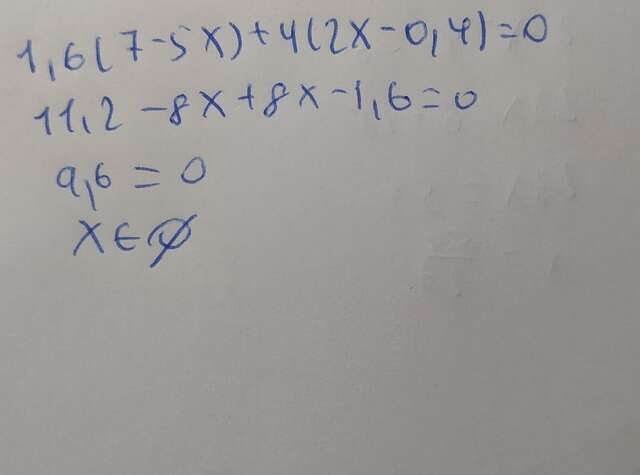 1,6(7-5X)+4(2X-0,4)=0
11,2-8X+8X-1,6=0
9,6=0
X∈∅